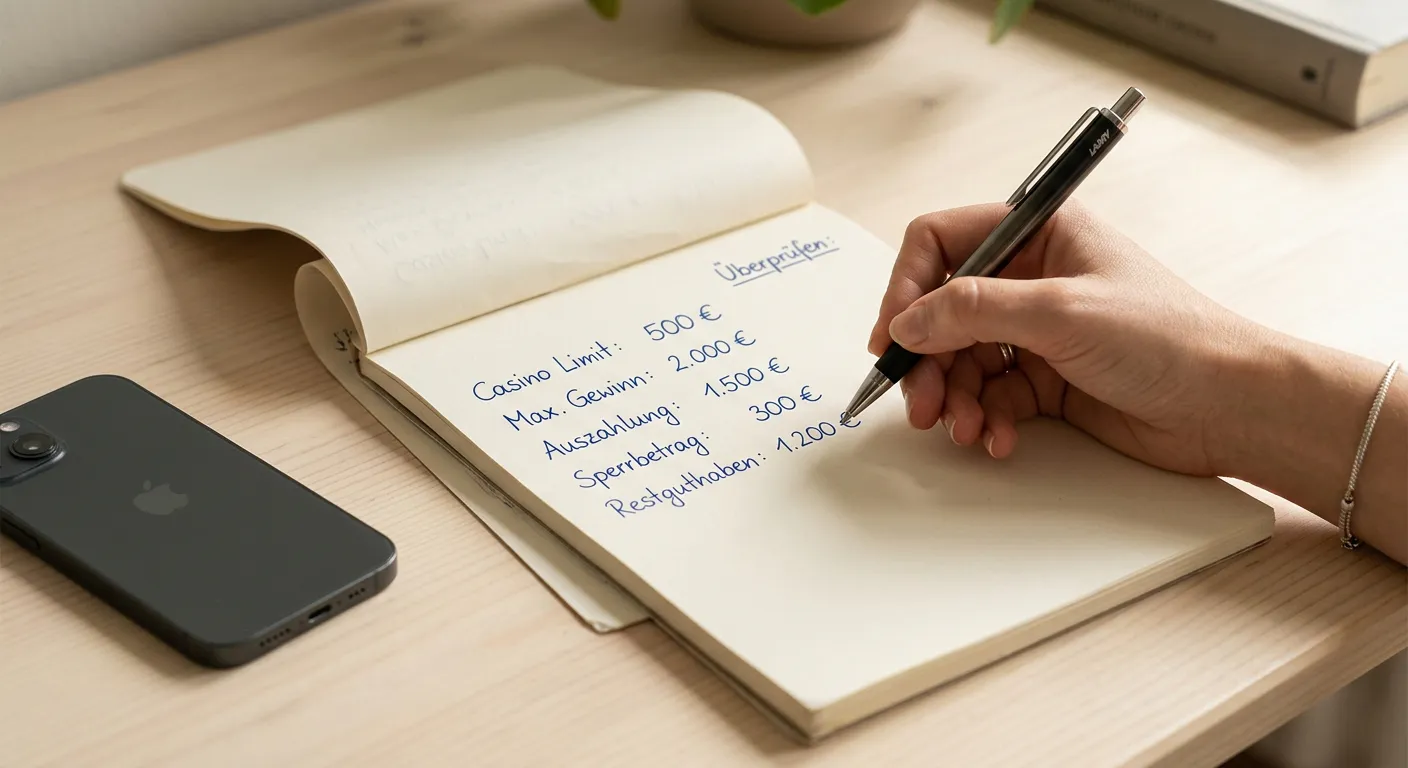 Überprüfen:
Casino Limit: 500 €
Max. Gewinn: 2.000 €
Auszahlung: 1.500 €
Sperrbetrag: 300 €
Restguthaben: 1.200 €
LAMY